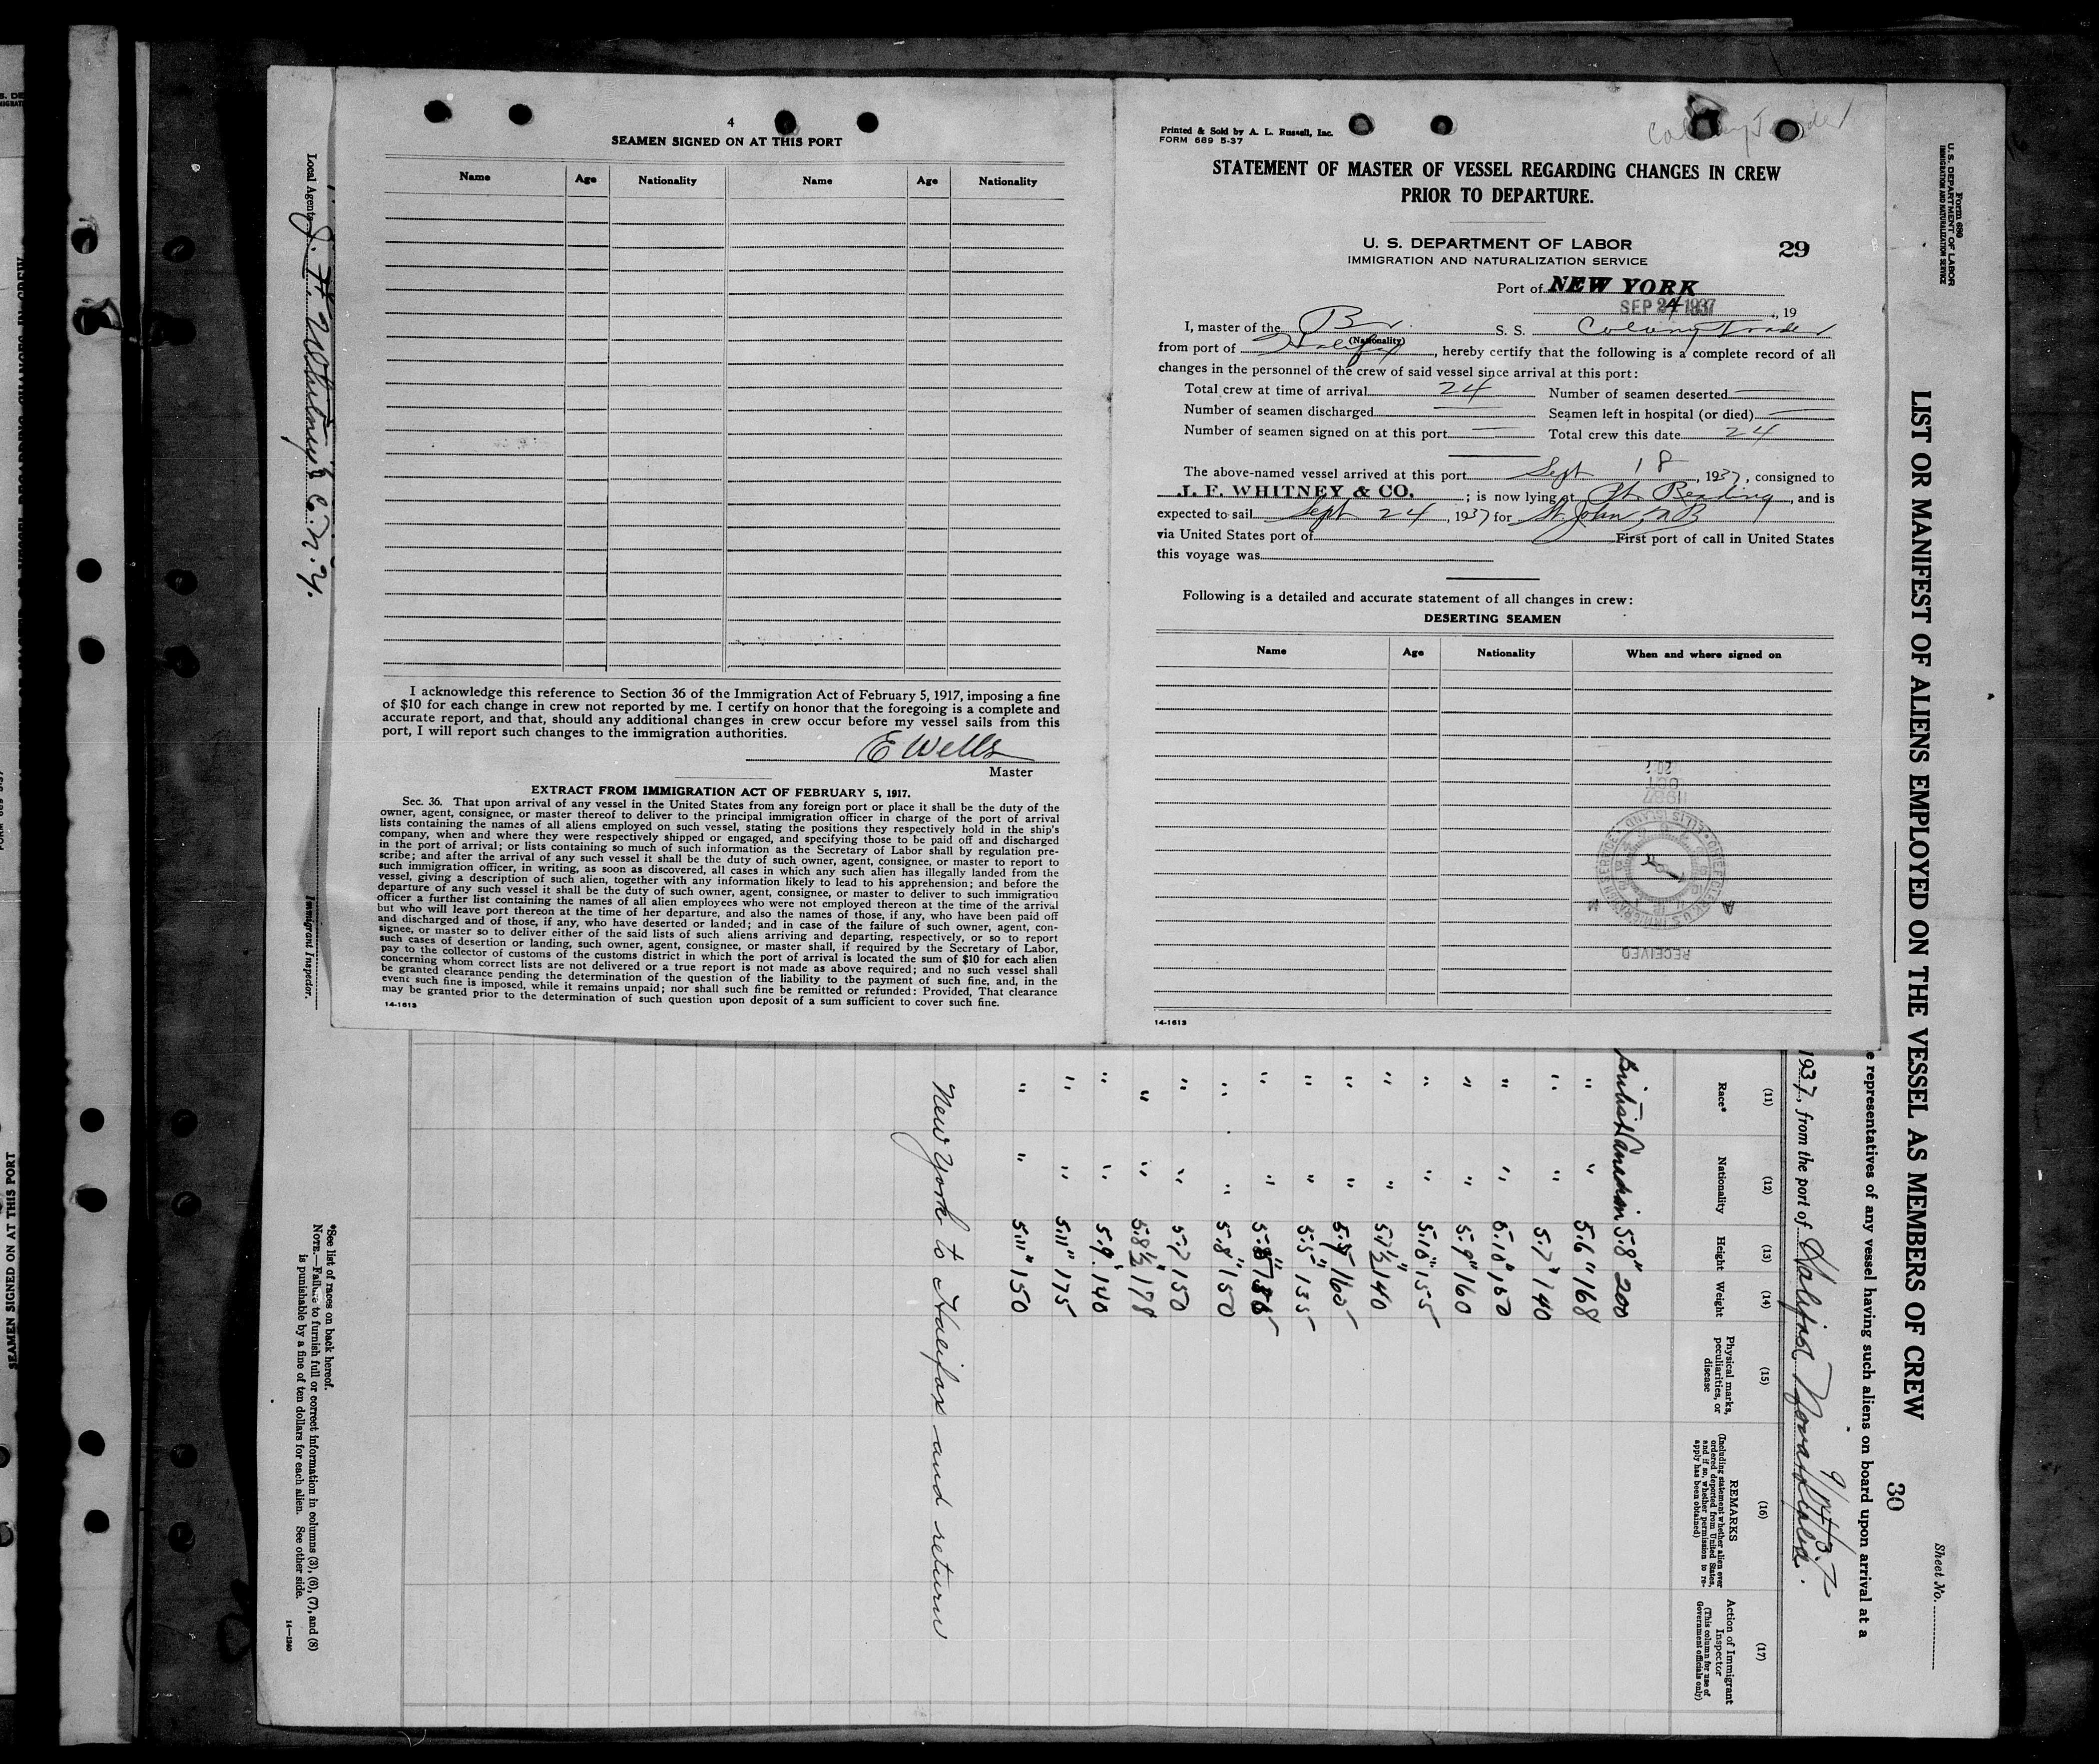 4
SEAMEN SIGNED ON AT THIS PORT
Name Age Nationality Name Age Nationality
I acknowledge this reference to Section 36 of the Immigration Act of February 5, 1917, imposing a fine
of $10 for each change in crew not reported by me. I certify on honor that the foregoing is a complete and
accurate report, and that, should any additional changes in crew occur before my vessel sails from this
port, I will report such changes to the immigration authorities.
E Wells
Master
EXTRACT FROM IMMIGRATION ACT OF FEBRUARY 5, 1917.
Sec. 36. That upon arrival of any vessel in the United States from any foreign port or place it shall be the duty of the
owner, agent, consignee, or master thereof to deliver to the principal immigration officer in charge of the port of arrival
lists containing the names of all aliens employed on such vessel, stating the positions they respectively hold in the ship's
company, when and where they were respectively shipped or engaged, and specifying those to be paid off and discharged
in the port of arrival; or lists containing so much of such information as the Secretary of Labor shall by regulation pre-
scribe; and after the arrival of any such vessel it shall be the duty of such owner, agent, consignee, or master to report to
such immigration officer, in writing, as soon as discovered, all cases in which any such alien has illegally landed from the
vessel, giving a description of such alien, together with any information likely to lead to his apprehension; and before the
departure of any such vessel it shall be the duty of such owner, agent, consignee, or master to deliver to such immigration
officer a further list containing the names of all alien employees who were not employed thereon at the time of the arrival
but who will leave port thereon at the time of her departure, and also the names of those, if any, who have been paid off
and discharged and of those, if any, who have deserted or landed; and in case of the failure of such owner, agent, con-
signee, or master so to deliver either of the said lists of such aliens arriving and departing, respectively, or so to report
such cases of desertion or landing, such owner, agent, consignee, or master shall, if required by the Secretary of Labor,
pay to the collector of customs of the customs district in which the port of arrival is located the sum of $10 for each alien
concerning whom correct lists are not delivered or a true report is not made as above required; and no such vessel shall
be granted clearance pending the determination of the question of the liability to the payment of such fine, and, in the
event such fine is imposed, while it remains unpaid; nor shall such fine be remitted or refunded: Provided, That clearance
may be granted prior to the determination of such question upon deposit of a sum sufficient to cover such fine.
14-1613
Printed & Sold by A. L. Russell, Inc.
FORM 689 5-37
Colony Trader
STATEMENT OF MASTER OF VESSEL REGARDING CHANGES IN CREW
PRIOR TO DEPARTURE.
U. S. DEPARTMENT OF LABOR
29
IMMIGRATION AND NATURALIZATION SERVICE
Port of NEW YORK
SEP 24 1937, 19
I, master of the Br. S. S. Colony Trader
(Nationality)
from port of Halifax, hereby certify that the following is a complete record of all
changes in the personnel of the crew of said vessel since arrival at this port:
Total crew at time of arrival 24 Number of seamen deserted
Number of seamen discharged Seamen left in hospital (or died)
Number of seamen signed on at this port Total crew this date 24
The above-named vessel arrived at this port Sept 18, 1937, consigned to
J. F. WHITNEY & CO. ; is now lying at Pt Reading, and is
expected to sail Sept 24, 1937 for St. John, NB
via United States port of First port of call in United States
this voyage was
Following is a detailed and accurate statement of all changes in crew:
DESERTING SEAMEN
Name Age Nationality When and where signed on
1937
OCT
RECEIVED
14-1613
Form 680
U. S. DEPARTMENT OF LABOR
IMMIGRATION AND NATURALIZATION SERVICE
Sheet No.
LIST OR MANIFEST OF ALIENS EMPLOYED ON THE VESSEL AS MEMBERS OF CREW
30
e representatives of any vessel having such aliens on board upon arrival at a
1937, from the port of Halifax Nova Scotia.
(11) (12) (13) (14) (15) (16) (17)
Race* Nationality Height Weight Physical marks, peculiarities, or disease REMARKS (Including statement whether alien ever ordered deported from United States, and if so, whether permission to re-apply has been obtained) Action of Immigrant Inspector (This column for use of Government officials only)
British Canadian 5.8" 200
" " 5.6" 168
" " 5.7" 140
" " 5.10" 150
" " 5.9" 160
" " 5.10" 155
" " 5.7½" 140
" " 5.9" 165
" " 5.5" 135
" "
" " 5.8" 150
" " 5.7 150
" " 5.8½" 178
" " 5.9. 140
" " 5.11" 175
" " 5.11" 150
New York to Halifax and return
*See list of races on back hereof.
NOTE.—Failure to furnish full or correct information in columns (3), (6), (7), and (8)
is punishable by a fine of ten dollars for each alien. See other side.
14—1240
Local Agents J. F. Whitney & Co. N.Y.
Immigrant Inspector.
SEAMEN SIGNED ON AT THIS PORT